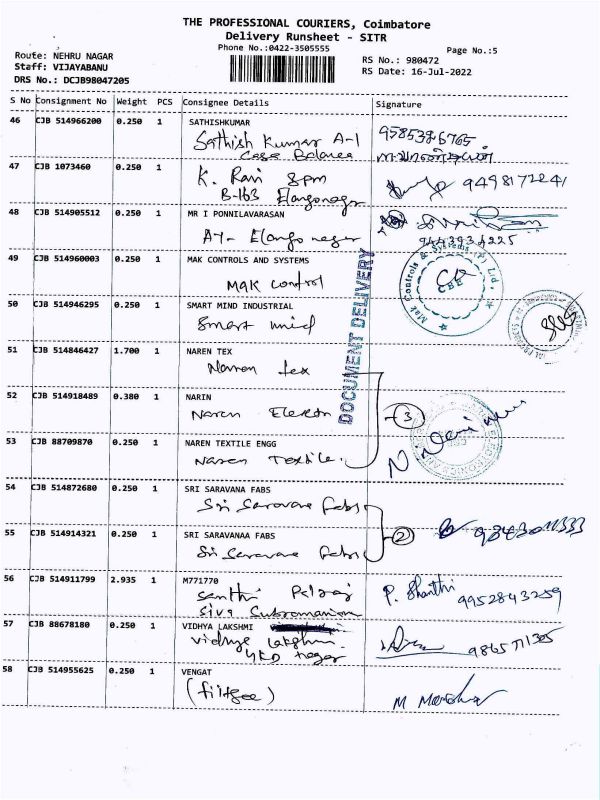 THE PROFESSIONAL COURIERS, Coimbatore
Delivery Runsheet - SITR
Phone No.:0422-3505555
Page No.:5
Route: NEHRU NAGAR
Staff: VIJAYABANU
DRS No.: DCJB98047205
RS No.: 980472
RS Date: 16-Jul-2022
S No Consignment No Weight PCS Consignee Details Signature
46 CJB 514966200 0.250 1 SATHISHKUMAR
Sathish Kumar A-1 9585326765
47 CJB 1073460 0.250 1
K. Ravi 8pm 9498172241
B-163 Elangonagar
48 CJB 514905512 0.250 1 MR I PONNILAVARASAN
A-1- Elango nagar 9443934225
49 CJB 514960003 0.250 1 MAK CONTROLS AND SYSTEMS
Mak Control
Mak Controls & Systems (P) Ltd.
CBE
DOCUMENT DELIVERY
50 CJB 514946295 0.250 1 SMART MIND INDUSTRIAL
Smart mind
51 CJB 514846427 1.700 1 NAREN TEX
Naren tex
52 CJB 514918489 0.380 1 NARIN
Naren 3
53 CJB 88709870 0.250 1 NAREN TEXTILE ENGG
Naren Textile.
54 CJB 514872680 0.250 1 SRI SARAVANA FABS
Sri Saravane Fabs
55 CJB 514914321 0.250 1 SRI SARAVANAA FABS
Sri Saravane Fabs 2
56 CJB 514911799 2.935 1 M771770
Santhi Palraj P. Shanthi 9952843259
Siva Subramaniam
57 CJB 88678180 0.250 1 VIDHYA LAKSHMI
vidhya Lakshmi
nagar
58 CJB 514955625 0.250 1 VENGAT